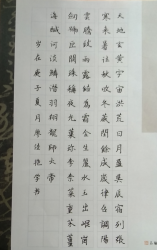 天地玄黃宇宙洪荒日月盈昃辰宿列張
寒來暑往秋收冬藏閏餘成歲律呂調陽
雲騰致雨露結為霜金生麗水玉出崐岡
劍號巨闕珠稱夜光菓珍李柰菜重芥薑
海鹹河淡鱗潛羽翔龍師火帝
岁在庚子夏月学书